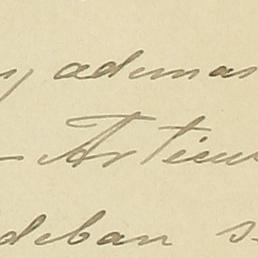 y ademas
Articu
deban s